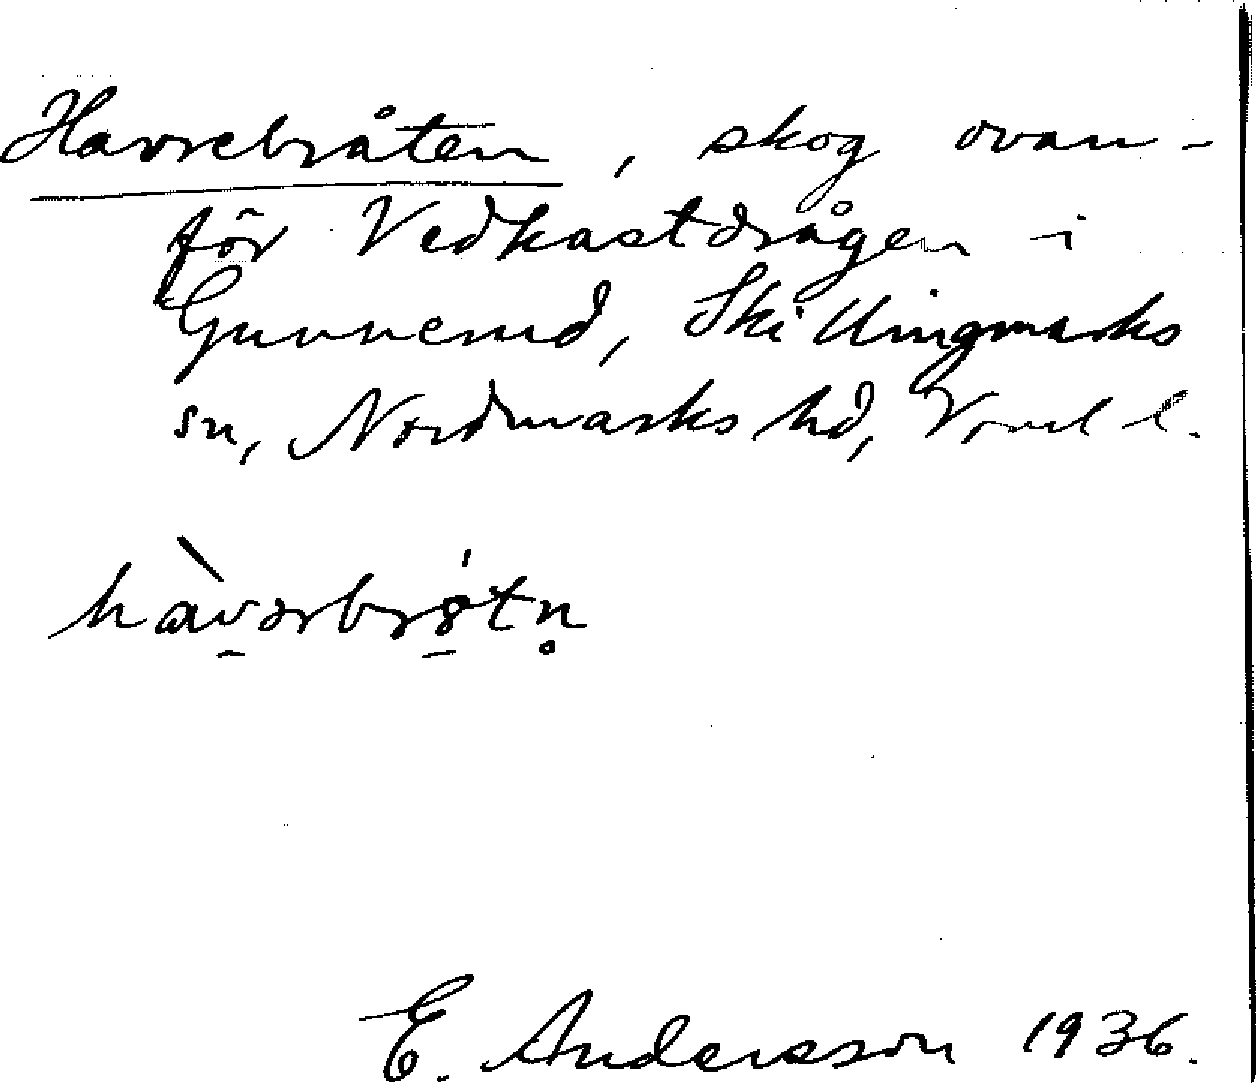 Havrebråten, skog ovan-
för Vedkastdrågen i
Gunnerud, Skillingmarks
sn, Nordmarks hd, Vrml l.
hàvərbrótn̥
E. Andersson 1936.